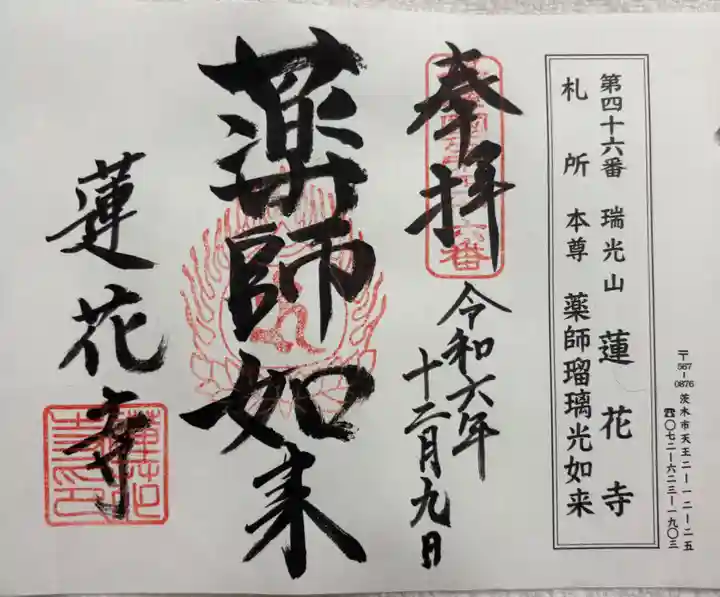 第四十六番 瑞光山 蓮花寺
札所 本尊 薬師瑠璃光如来
〒567-0876 茨木市天王二ー一二ー二五
☎〇七二ー六二三ー一九〇三
奉拝
令和六年
十二月九日
薬師如来
蓮花寺